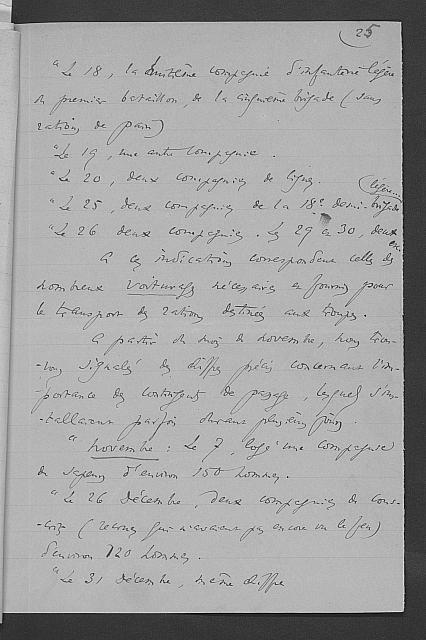 25
"Le 18, la huitième compagnie d'infanterie légère
du premier bataillon, de la cinquième brigade (sans
rations de pain)
"Le 19, une autre compagnie.
"Le 20, deux compagnies de ligne.
(légère
"Le 25, deux compagnies de la 18e demi-brigade
"Le 26 deux compagnies. Les 29 et 30, deux
A ces indications correspondent celles des
nombreux voiturages nécessaires et fournis pour
le transport des rations destinées aux troupes.
A partir du mois de novembre, nous trou-
-vons signalés des chiffres précis concernant l'im-
-portance des contingents de passage, lesquels s'ins-
-tallaient parfois durant plusieurs jours.
"novembre : Le 7, logé une compagnie
de sapeurs d'environ 150 hommes.
"Le 26 Décembre, deux compagnies de cons-
-crits (recrues qui n'avaient pas encore vu le feu)
d'environ 120 hommes.
"Le 31 Décembre, même chiffre